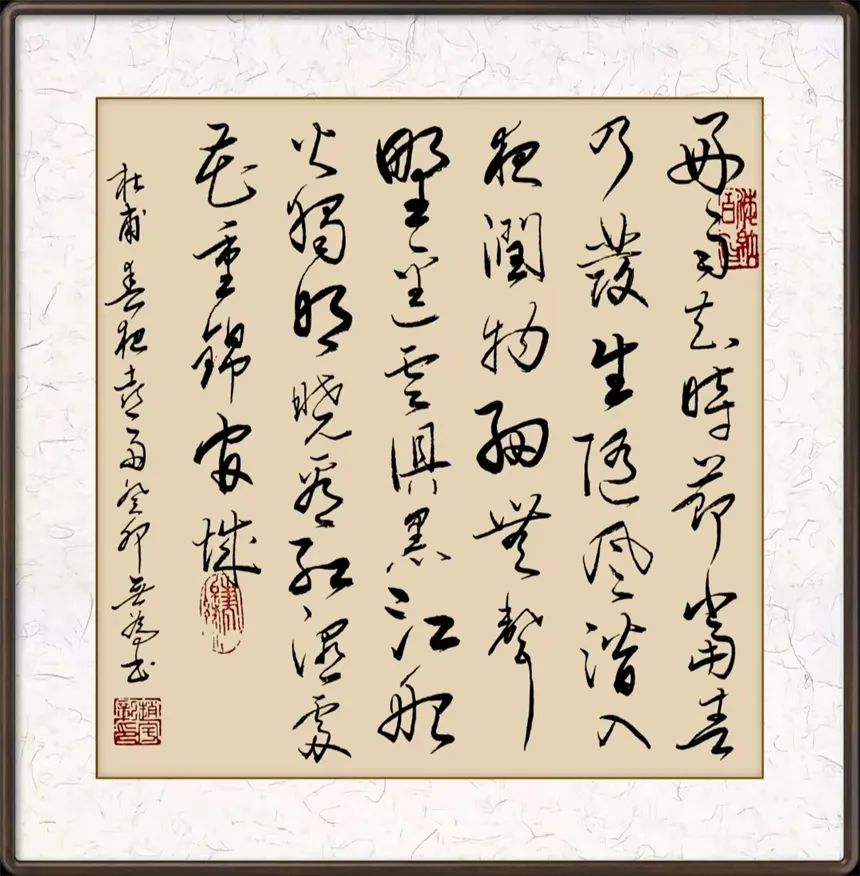 好雨知時節當春
乃發生隨風潛入
夜潤物細無聲
野逕雲俱黑江船
火獨明曉看紅濕處
花重錦官城
杜甫春夜喜雨癸卯無為书